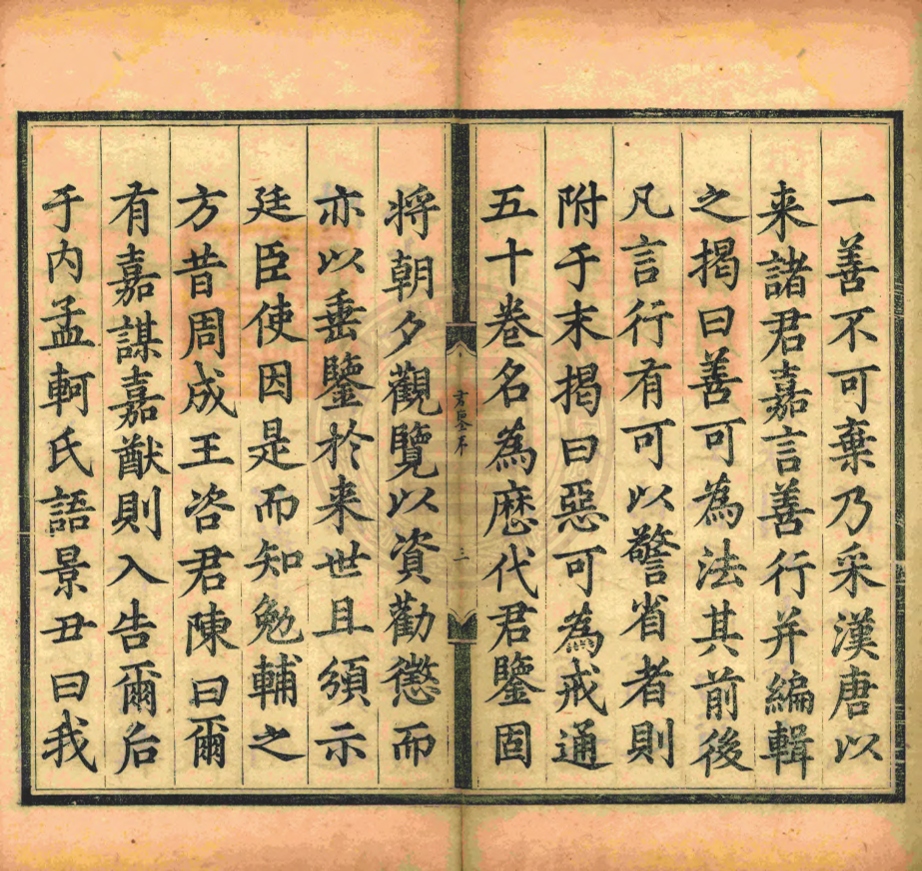 一善不可棄乃采漢唐以
来諸君嘉言善行并編輯
之揭曰善可為法其前後
凡言行有可以警省者則
附于末揭曰惡可為戒通
五十卷名為歷代君鑒固
君鑒序
三
將朝夕觀覽以資勸懲而
亦以垂鑒於来世且頒示
廷臣使因是而知勉輔之
方昔周成王咨君陳曰爾
有嘉謀嘉猷則入告爾后
于内孟軻氏語景丑曰我